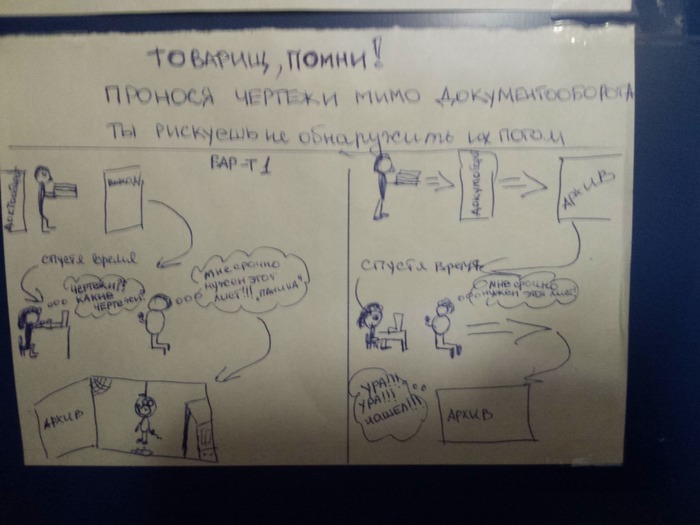 ТОВАРИЩ, ПОМНИ!
ПРОНОСЯ ЧЕРТЕЖИ МИМО ДОКУМЕНТООБОРОТА
ТЫ РИСКУЕШЬ НЕ ОБНАРУЖИТЬ ИХ ПОТОМ
ВАР-Т 1
ВЫХОД
СПУСТЯ ВРЕМЯ
ЧЕРТЕЖИ?!
КАКИЕ
ЧЕРТЕЖИ?
МНЕ СРОЧНО
НУЖЕН ЭТОТ
ЛИСТ!!! „ПАНИКА"
АРХИВ
АРХИВ
СПУСТЯ ВРЕМЯ
МНЕ СРОЧНО
НУЖЕН ЭТОТ ЛИСТ!
УРА!!!
УРА!!!
НАШЕЛ!!!
АРХИВ